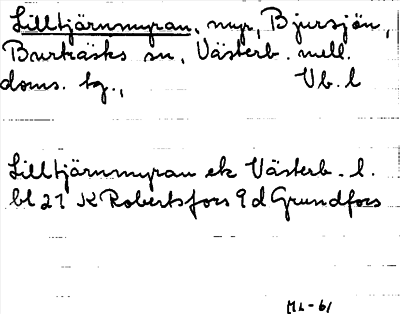 Lilltjärnmyran, myr, Bjursjön,
Burträsks sn, Västerb. mell.
doms. tg., Vb. l
Lilltjärnmyran ek Västerb. l.
bl 21 K Robertsfors 9 d Grundfors
ML-61